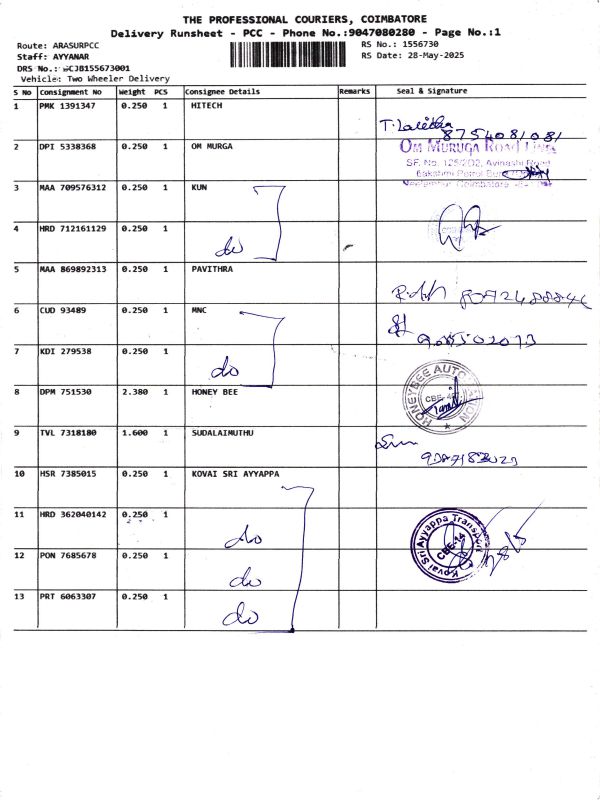 THE PROFESSIONAL COURIERS, COIMBATORE
Delivery Runsheet - PCC - Phone No.:9047080280 - Page No.:1
Route: ARASURPCC
RS No.: 1556730
Staff: AYYANAR
RS Date: 28-May-2025
DRS No.: CJB155673001
Vehicle: Two Wheeler Delivery
S No Consignment No Weight PCS Consignee Details Remarks Seal & Signature
1 PMK 1391347 0.250 1 HITECH
T. Lalitha 8754081081
2 DPI 5338368 0.250 1 OM MURGA
OM MURUGA ROAD LINES
SF. No. 125/2D2, Avinashi Road
Lakshmi Petrol Bunk
Neelambur Coimbatore
3 MAA 709576312 0.250 1 KUN
4 HRD 712161129 0.250 1 do
5 MAA 869892313 0.250 1 PAVITHRA
6 CUD 93489 0.250 1 MNC
7 KDI 279538 0.250 1 do
8 DPM 751530 2.380 1 HONEY BEE
HONEYBEE AUTO
9 TVL 7318180 1.600 1 SUDALAIMUTHU
10 HSR 7385015 0.250 1 KOVAI SRI AYYAPPA
11 HRD 362040142 0.250 1 do
Kovai Sri Ayyappa Transport
CBE-14
12 PON 7685678 0.250 1 do
13 PRT 6063307 0.250 1 do